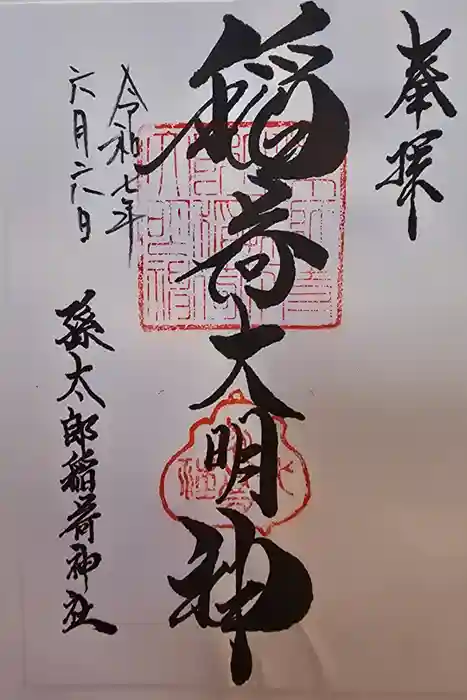 奉拝
稲荷大明神
令和七年
六月六日
孫太郎稲荷神社